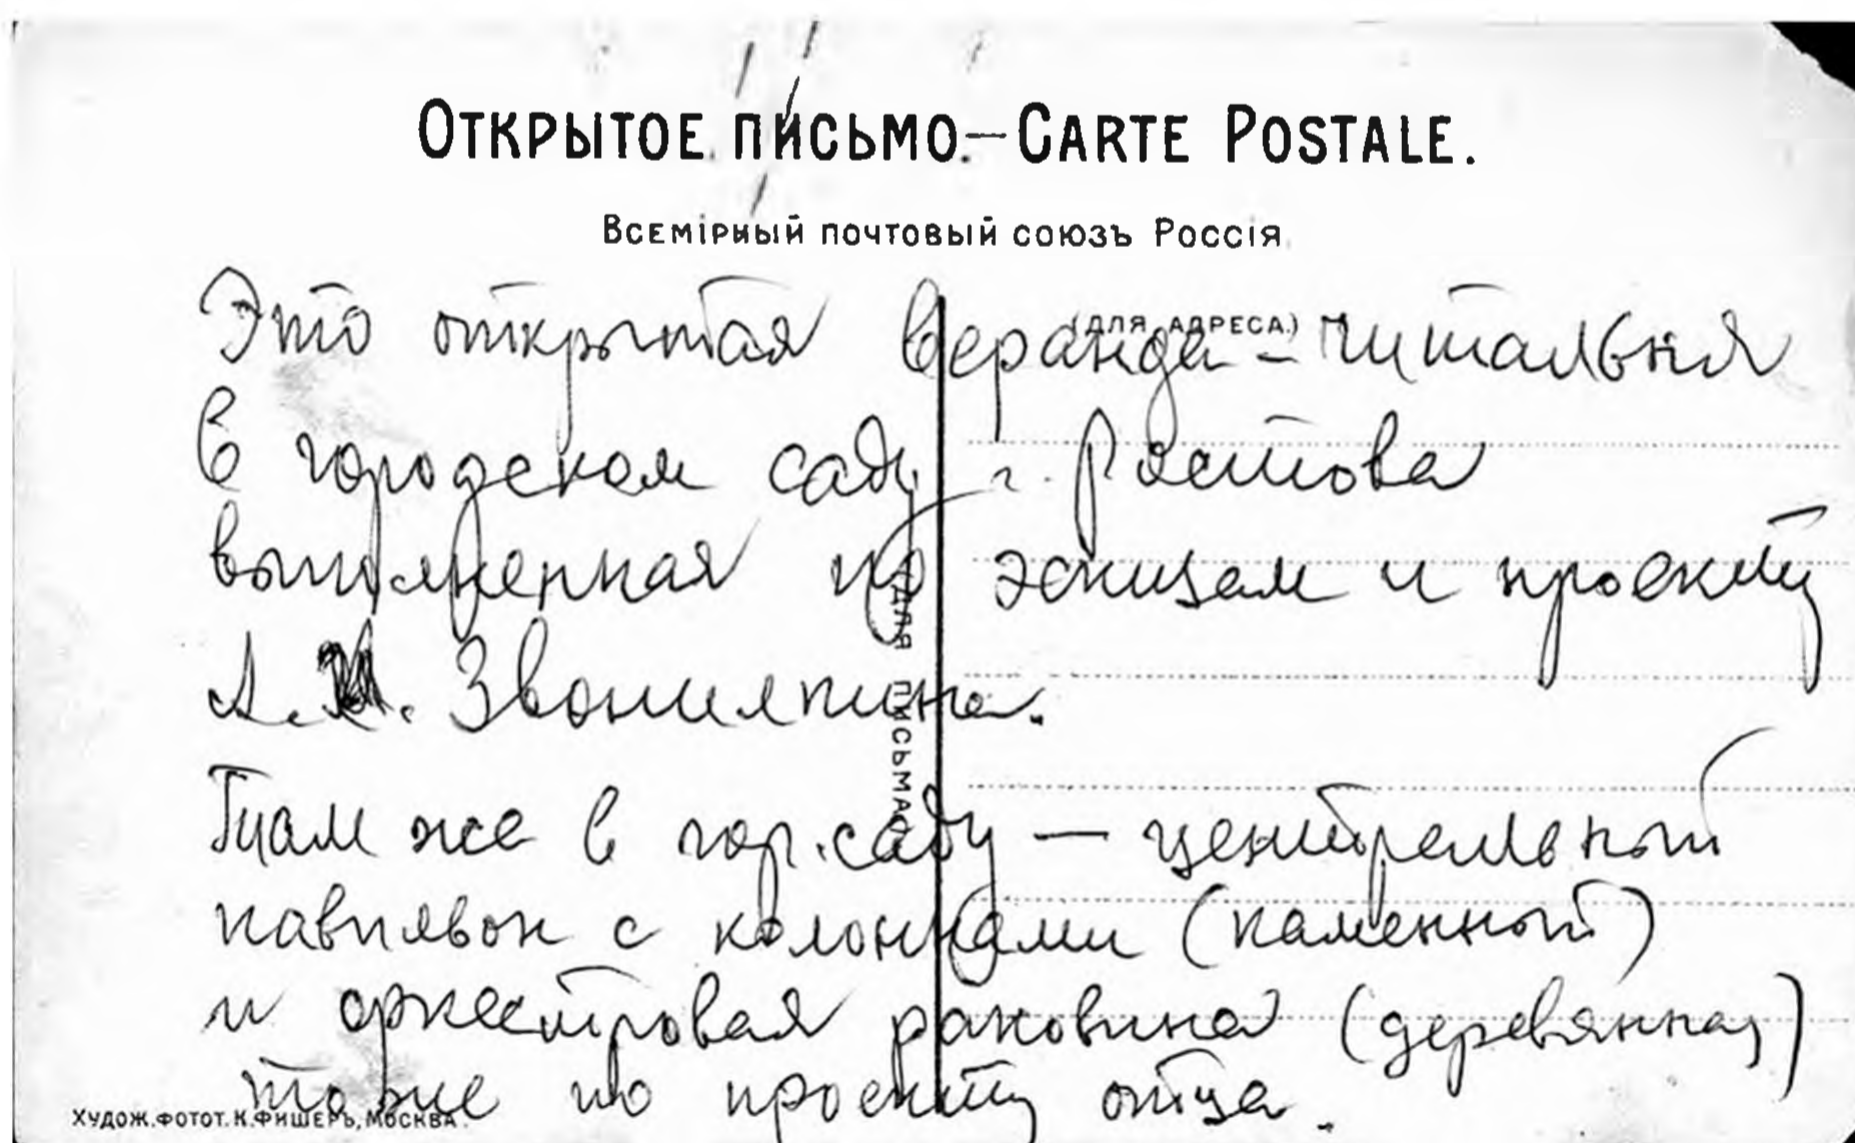 Открытое письмо.—Carte Postale.
Всемірный почтовый союзъ Россія.
(для адреса.)
Это открытая веранда – читальня
в городском саду г. Ростова
выполненная по эскизам и проекту
А.
Там же в гор. саду — центральный
павильон с колоннами (каменный)
и оркестровая раковина (деревянная)
тоже по проекту отца.
(для письма)
Худож. фотот. К. Фишеръ, Москва.